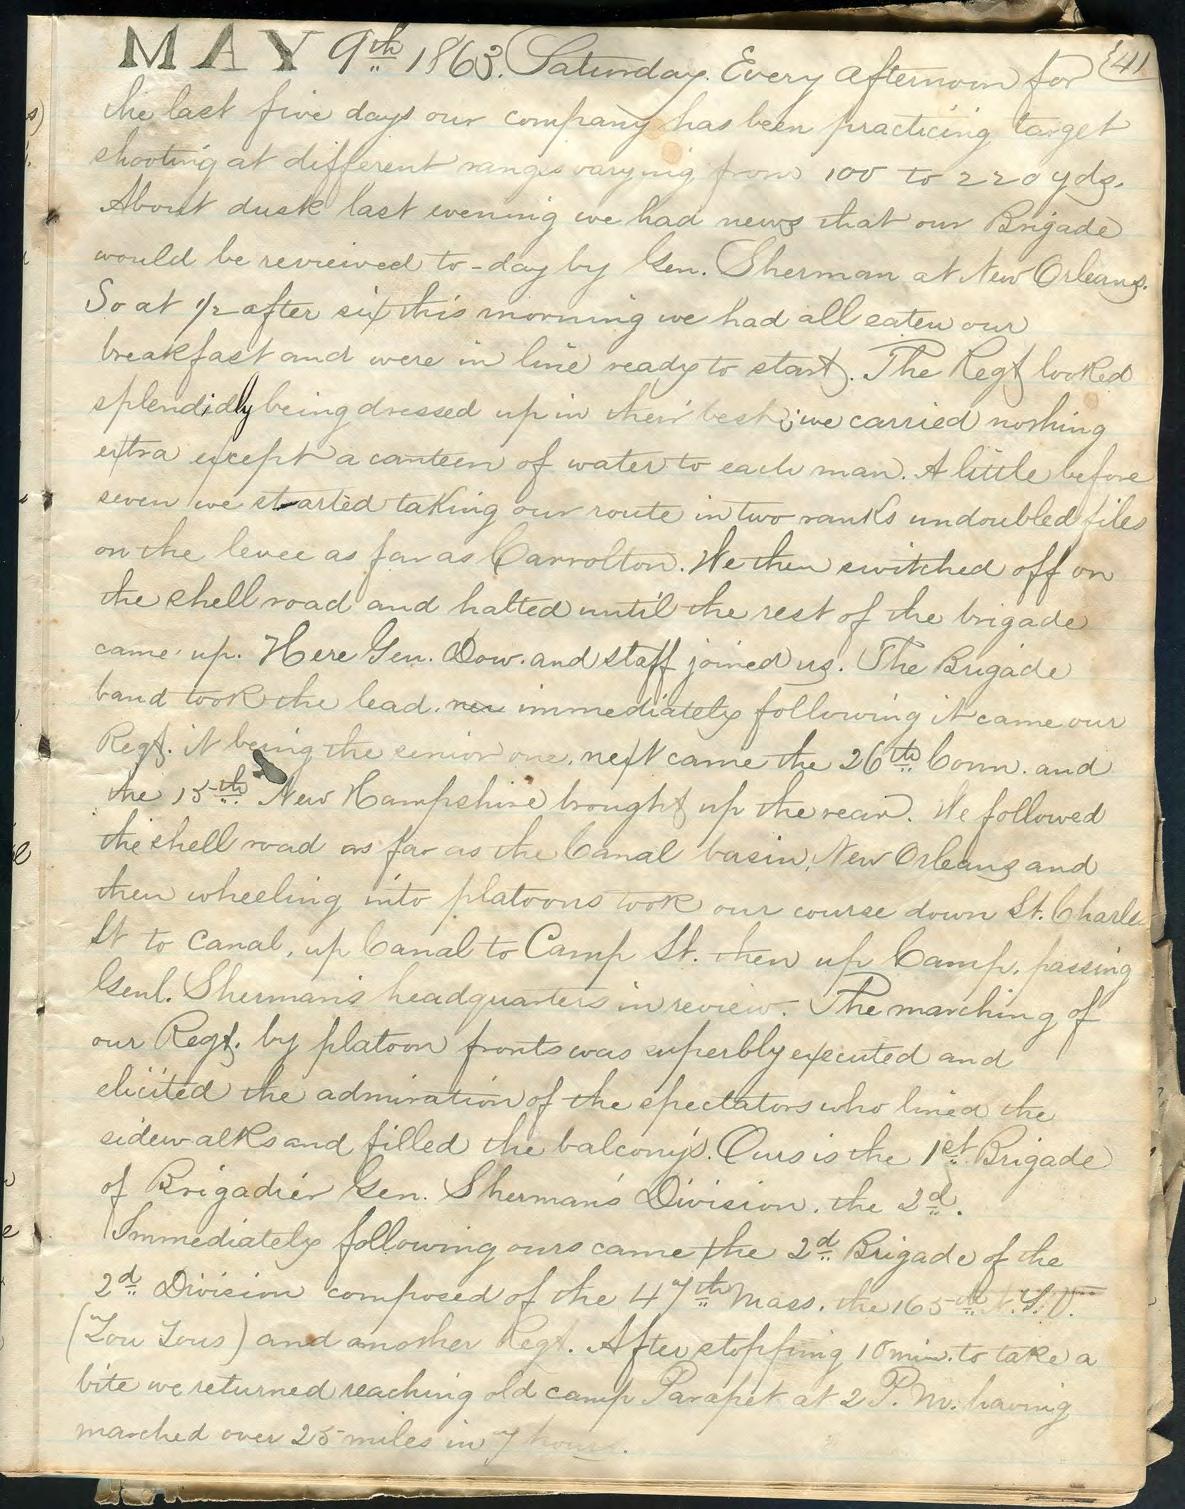 MAY 9th 1863. Saturday. Every afternoon for
41
the last five days our company has been practicing target
shooting at different ranges varying from 100 to 220 yds.
About dusk last evening we had news that our Brigade
would be reviewed to-day by Gen. Sherman at New Orleans.
So at 1/2 after six this morning we had all eaten our
breakfast and were in line ready to start. The Regt looked
splendidly being dressed up in their best; we carried nothing
extra except a canteen of water to each man. A little before
seven we started taking our route in two ranks undoubled files
on the levee as far as Carrolton. We then switched off on
the shell road and halted until the rest of the brigade
came up. Here Gen. Dow. and staff joined us. The Brigade
band took the lead. immediately following it came our
Regt. it being the senior one. next came the 26th Conn. and
the 15th New Hampshire brought up the rear. We followed
the shell road as far as the Canal basin, New Orleans and
then wheeling into platoons took our course down St. Charles
St to Canal, up Canal to Camp St. then up Camp, passing
Genl. Sherman's headquarters in review. The marching of
our Regt. by platoon fronts was superbly executed and
elicited the admiration of the spectators who lined the
sidewalks and filled the balcony's. Ours is the 1st Brigade
of Brigadier Gen. Sherman's Division, the 2d.
Immediately following ours came the 2d Brigade of the
2d Division composed of the 47th Mass. the 165th N.Y.V.
(Zou Zous) and another Regt. After stopping 10 min. to take a
bite we returned reaching old camp Parapet at 2 P.M. having
marched over 25 miles in 7 hours.